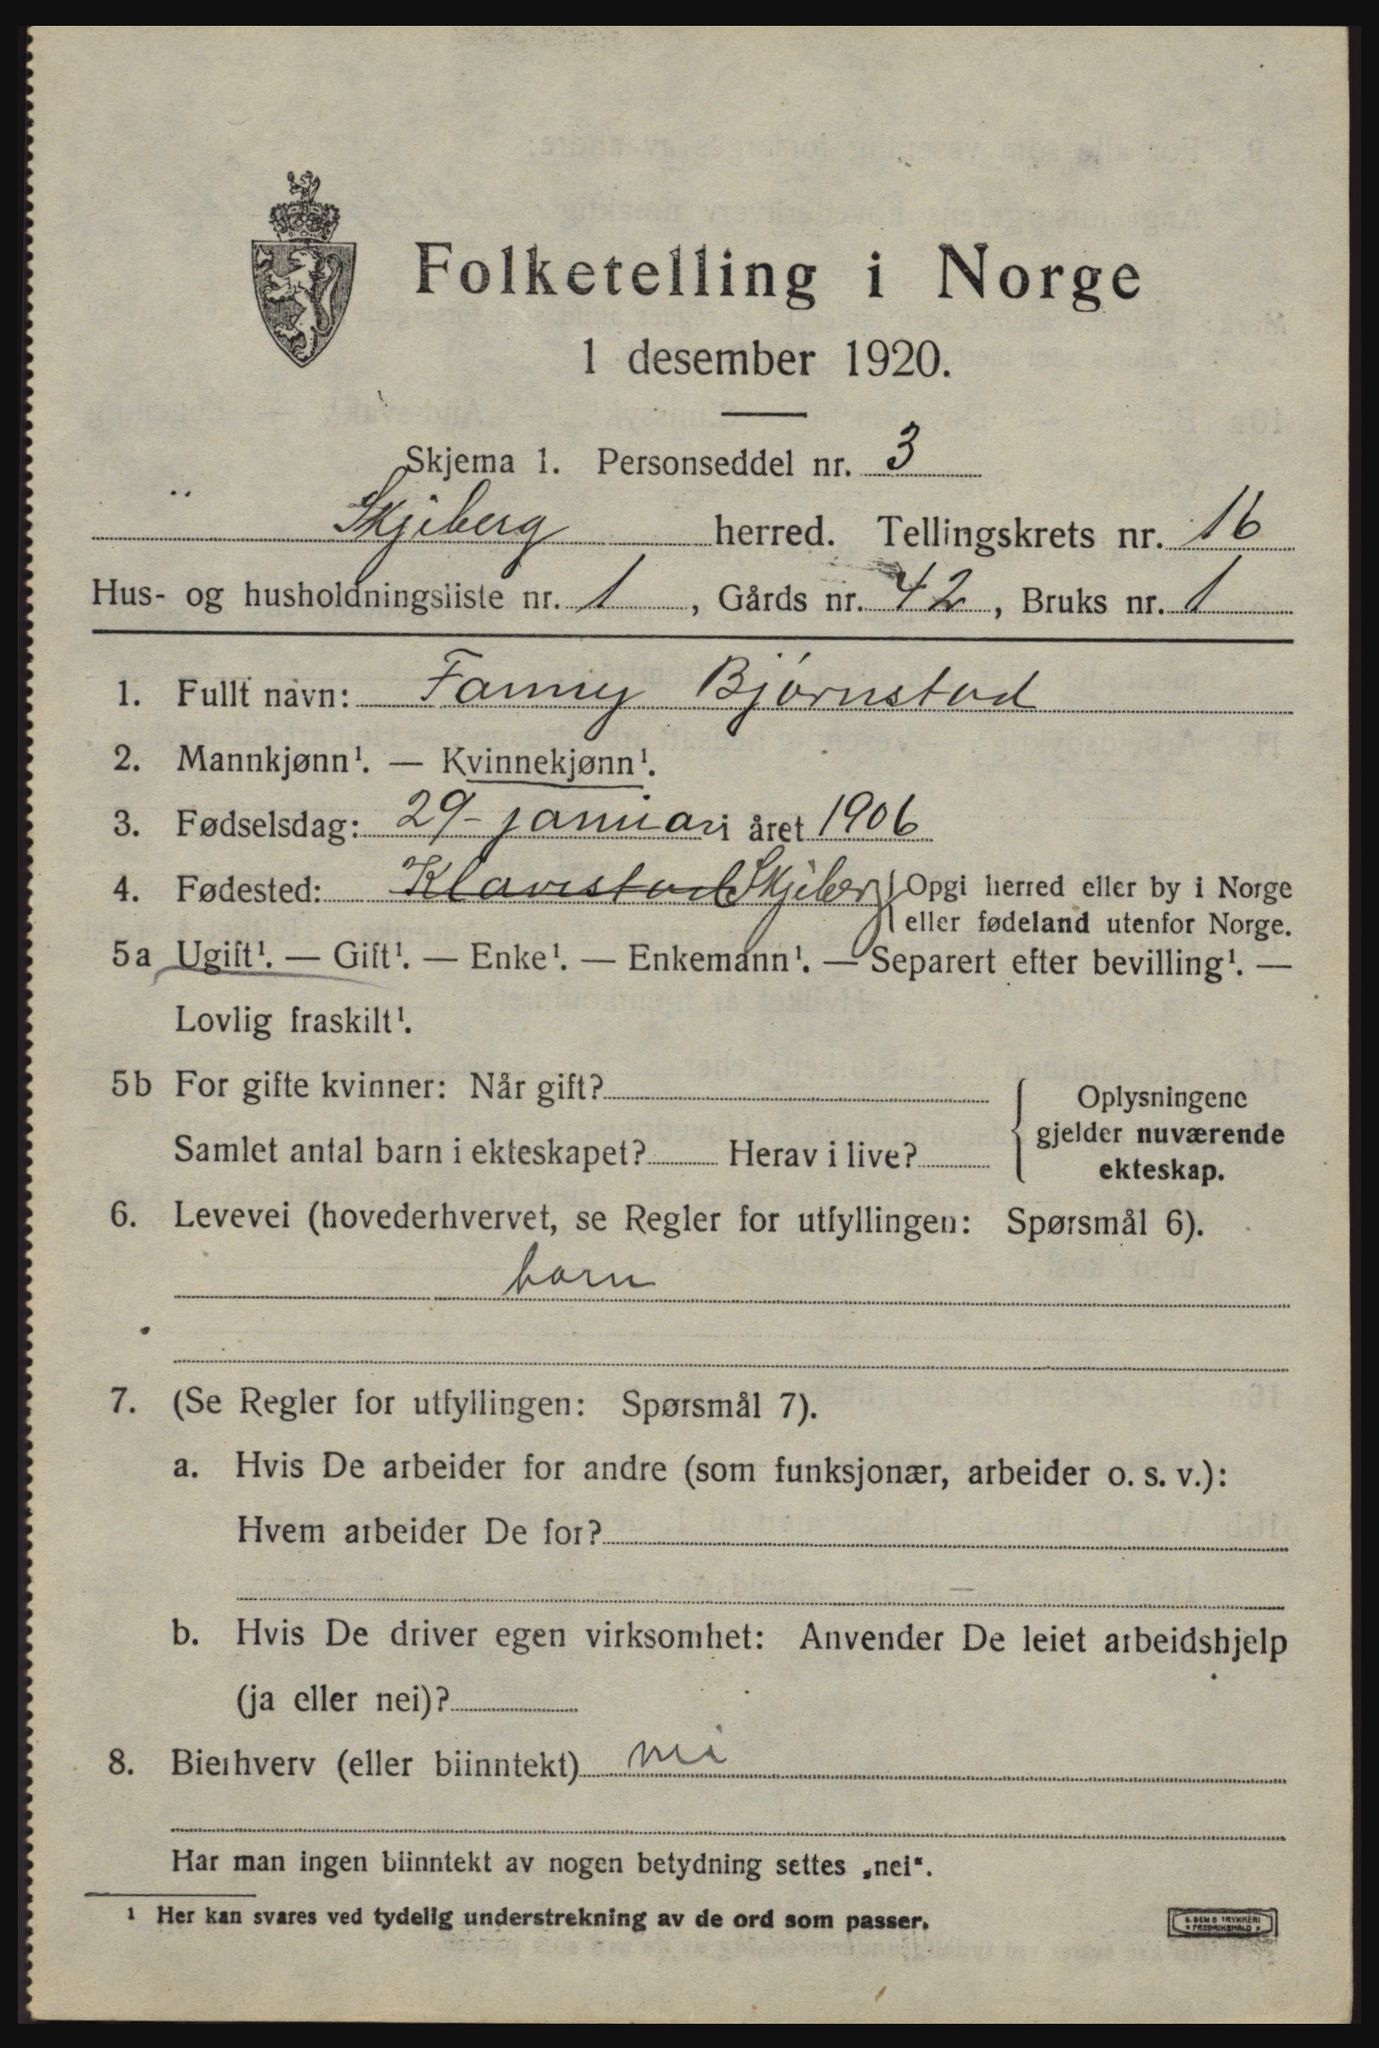 Folketelling i Norge
1 desember 1920.
Skjema 1. Personseddel nr. 3
Skjeberg herred. Tellingskrets nr. 16
Hus- og husholdningsliste nr. 1, Gårds nr. 42, Bruks nr. 1
1. Fullt navn: Fanny Bjørnstad
2. Mannkjønn¹. — Kvinnekjønn¹.
3. Fødselsdag: 29 januar i året 1906
4. Fødested: Klavestad Skjeberg Opgi herred eller by i Norge
eller fødeland utenfor Norge.
5a Ugift¹. — Gift¹. — Enke¹. — Enkemann¹. — Separert efter bevilling¹. —
Lovlig fraskilt¹.
5b For gifte kvinner: Når gift?
Samlet antal barn i ekteskapet? Herav i live?
Oplysningene
gjelder nuværende
ekteskap.
6. Levevei (hovederhvervet, se Regler for utfyllingen: Spørsmål 6).
barn
7. (Se Regler for utfyllingen: Spørsmål 7).
a. Hvis De arbeider for andre (som funksjonær, arbeider o. s. v.):
Hvem arbeider De for?
b. Hvis De driver egen virksomhet: Anvender De leiet arbeidshjelp
(ja eller nei)?
8. Bierhverv (eller biinntekt) nei
Har man ingen biinntekt av nogen betydning settes „nei“.
¹ Her kan svares ved tydelig understrekning av de ord som passer.
TRYKKERI
FREDRIKSHALD